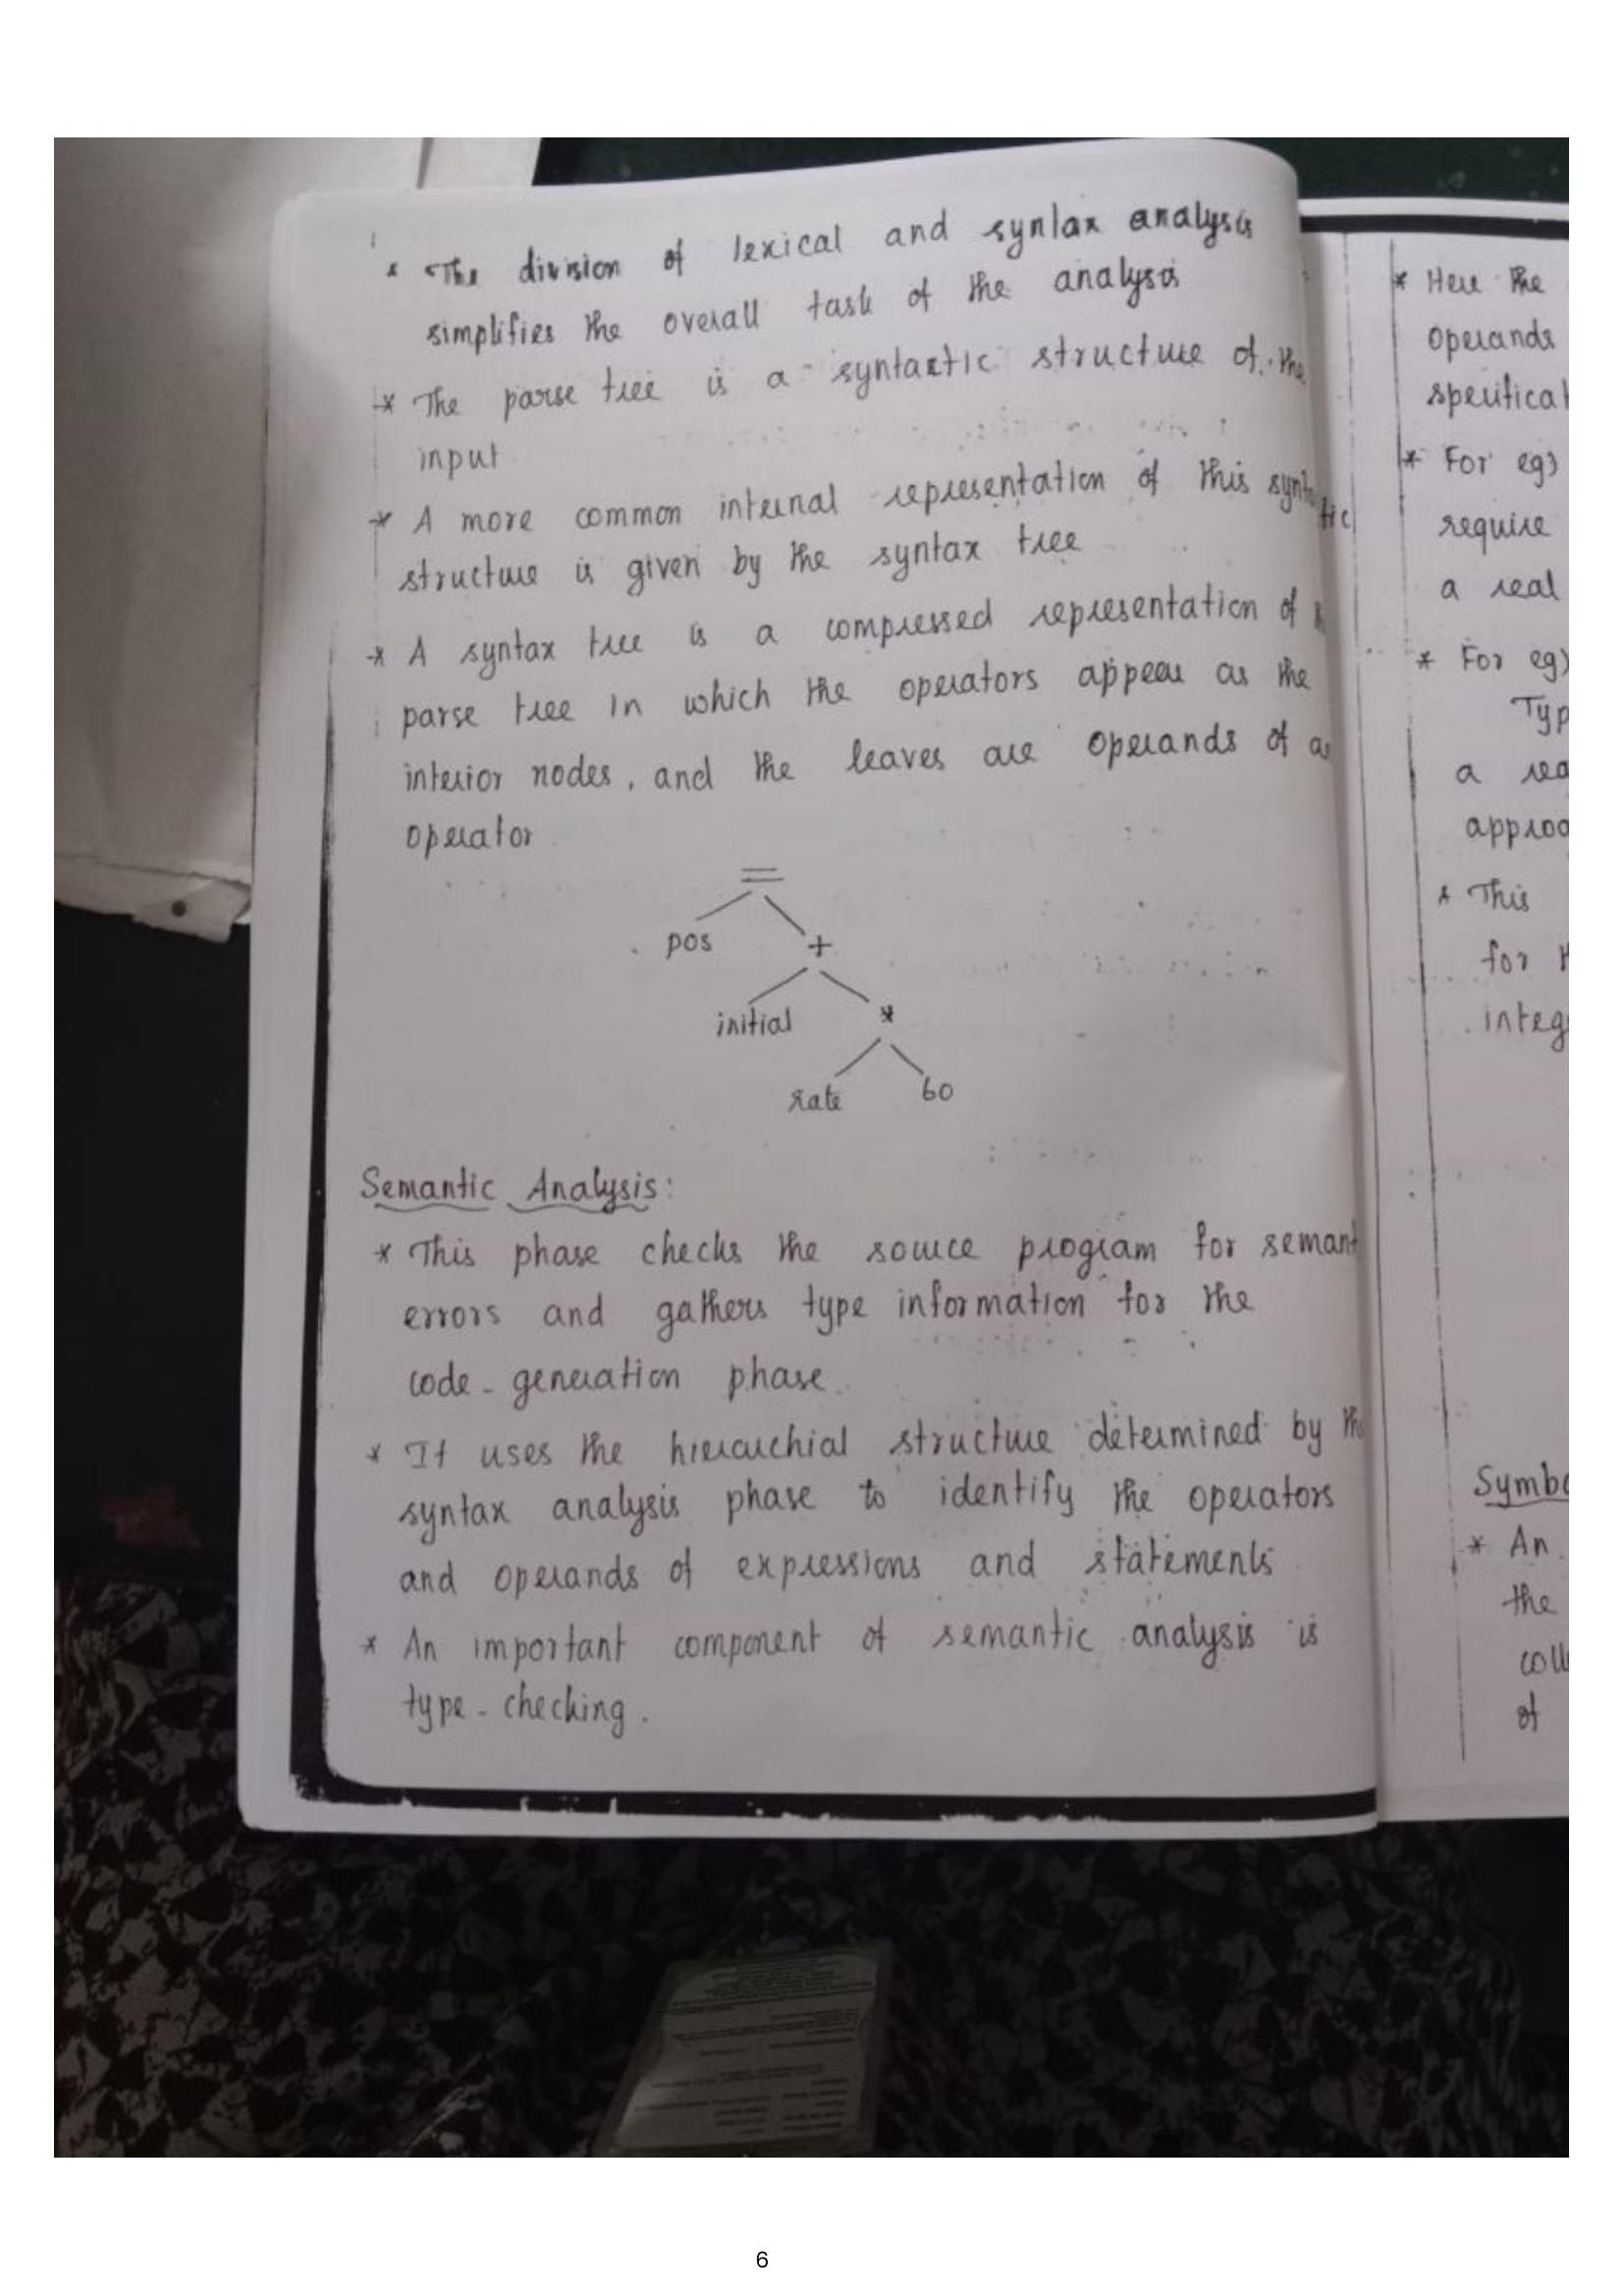 * The division of lexical and syntax analysis
simplifies the overall task of the analysis
* The parse tree is a syntactic structure of the
input
* A more common internal representation of this syntactic
structure is given by the syntax tree
* A syntax tree is a compressed representation of
parse tree in which the operators appear as the
interior nodes, and the leaves are operands of
operator
=
pos +
initial *
rate 60
Semantic Analysis:
* This phase checks the source program for semant
errors and gathers type information for the
code - generation phase.
* It uses the hierarchial structure determined by the
syntax analysis phase to identify the operators
and operands of expressions and statements
* An important component of semantic analysis is
type - checking.
* Here the
operands
* For eg)
require
a real
* For eg)
Typ
a rea
approa
* This
for
integ
Symbo
* An
the
coll
of
6